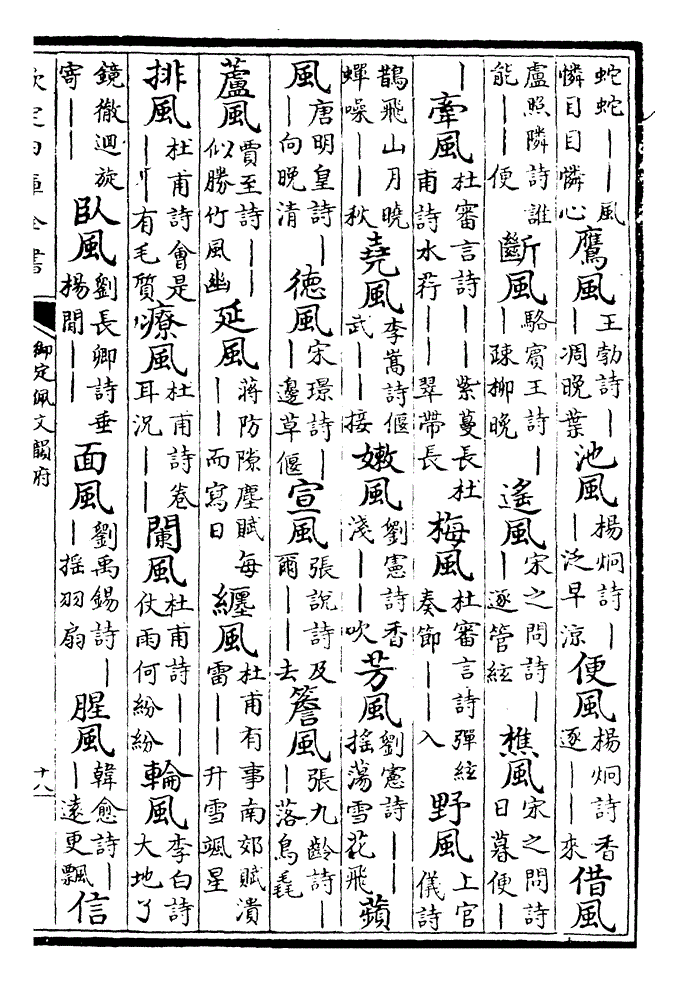 蛇蛇｜｜風憐目目憐心鷹風王勃詩｜｜凋晚葉池風楊炯詩｜｜泛早涼便風楊炯詩香逐｜｜來借風
盧照隣詩誰能｜｜便斷風駱賓王詩｜｜疎柳晚遙風宋之問詩｜｜逐管絃樵風宋之問詩日暮便｜
｜牽風杜審言詩｜｜紫蔓長杜甫詩水荇｜｜翠帶長梅風杜審言詩彈絃奏節｜｜入野風上官儀詩
鵲飛山月曉蟬噪｜｜秋堯風李嵩詩偃武｜｜接嫩風劉憲詩香淺｜｜吹芳風劉憲詩｜｜搖蕩雪花飛蘋
風唐明皇詩｜｜向晚清德風宋璟詩｜｜邊草偃宣風張說詩及爾｜｜去簷風張九齡詩｜｜落鳥毳
蘆風賈至詩｜｜似勝竹風幽延風蔣防隙塵賦每｜｜而寫日纏風杜甫有事南郊賦潰雷｜｜升雪颯星
排風杜甫詩會是｜｜有毛質療風杜甫詩卷耳況｜｜闌風杜甫詩｜｜仗雨何紛紛輪風李白詩大地了
鏡徹迴旋寄｜｜臥風劉長卿詩垂楊間｜｜面風劉禹錫詩｜｜搖羽扇腥風韓愈詩｜｜遠更飄信
欽定四庫全書
御定佩文韻府
十八